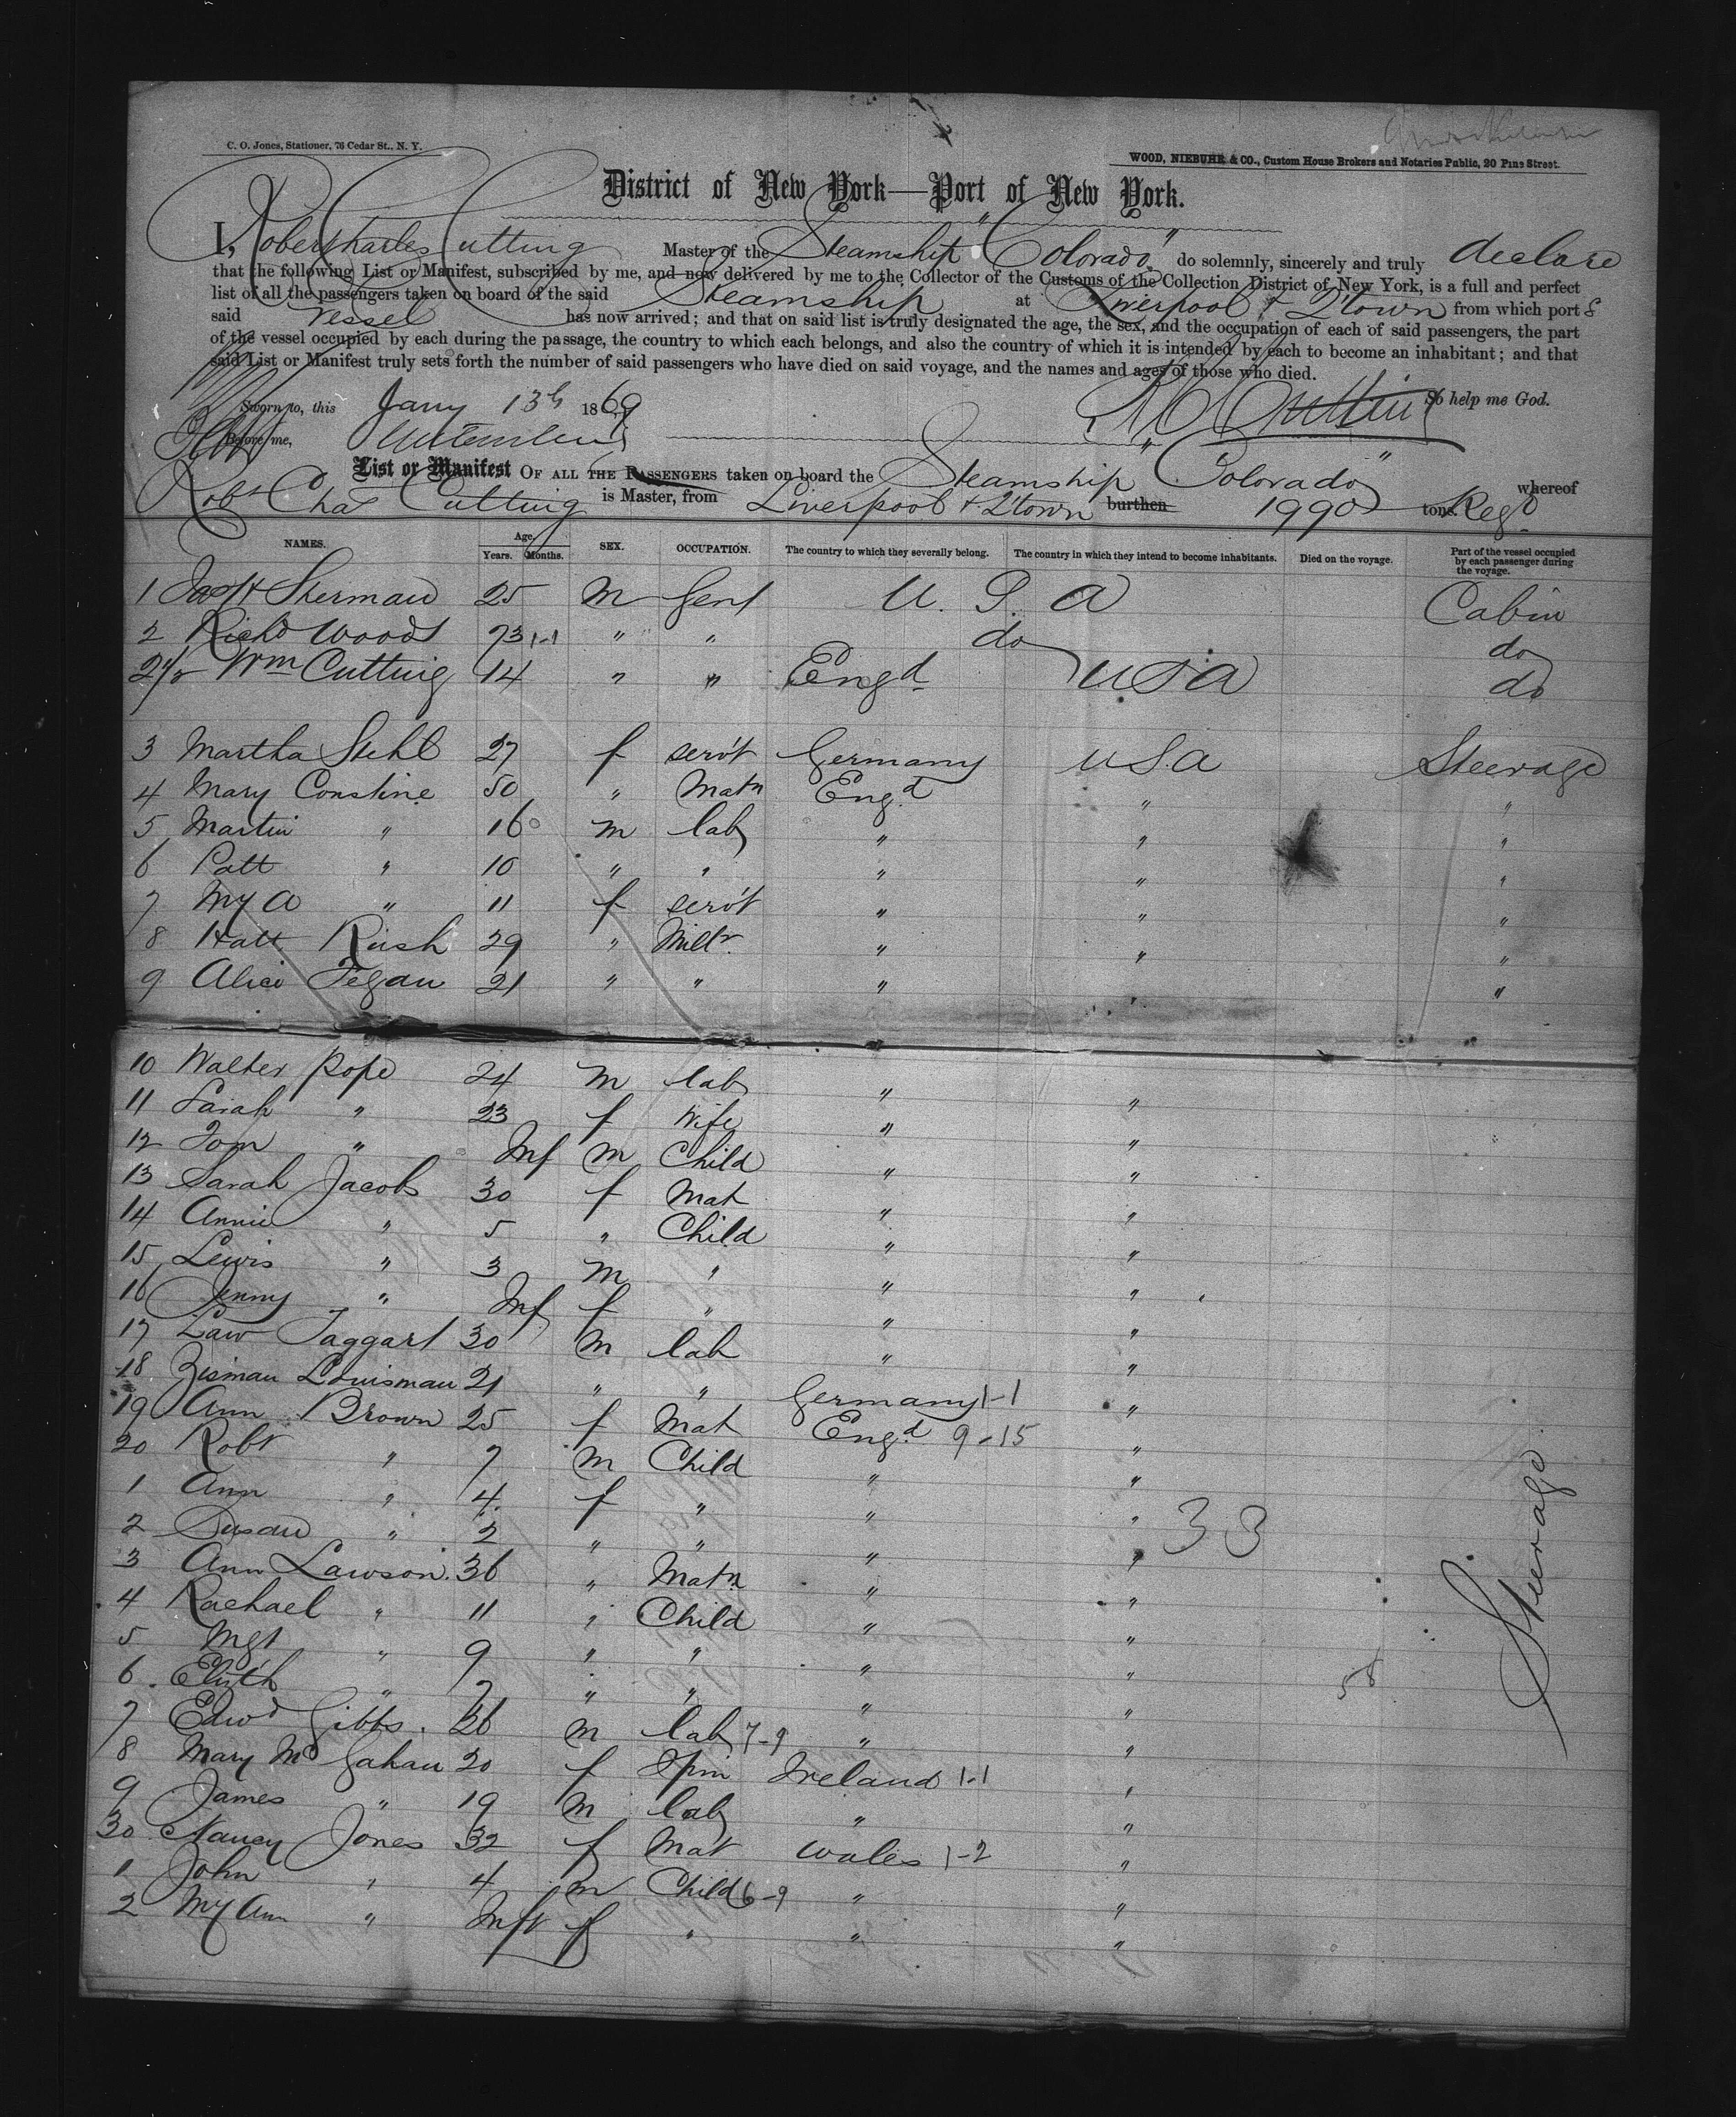 C. O. Jones, Stationer, 76 Cedar St., N. Y.
WOOD, NIEBUHR & CO., Custom House Brokers and Notaries Public, 20 Pine Street.
District of New York—Port of New York.
I, Robert Charles Cutting Master of the Steamship "Colorado" do solemnly, sincerely and truly declare
that the following List or Manifest, subscribed by me, and now delivered by me to the Collector of the Customs of the Collection District of New York, is a full and perfect
list of all the passengers taken on board of the said Steamship at Liverpool & Qtown from which port s
said Vessel has now arrived; and that on said list is truly designated the age, the sex, and the occupation of each of said passengers, the part
of the vessel occupied by each during the passage, the country to which each belongs, and also the country of which it is intended by each to become an inhabitant; and that
said List or Manifest truly sets forth the number of said passengers who have died on said voyage, and the names and ages of those who died.
So help me God.
Sworn to, this Jany 13th 1869 R C Cutting
Before me,
List or Manifest OF ALL THE PASSENGERS taken on board the Steamship "Colorado" whereof
Robt Chas Cutting is Master, from Liverpool & Qtown burthen 1990 tons. Regd
NAMES. Age. Years. Months. SEX. OCCUPATION. The country to which they severally belong. The country in which they intend to become inhabitants. Died on the voyage. Part of the vessel occupied by each passenger during the voyage.
1 Sherman 25 m Gent U. S. A Cabin
2 Richd Woods 73 1-1 " " do do
2½ Wm Cutting 14 " " Engd USA do
3 Martha Stehl 27 f servt Germany USA Steerage
4 Mary Constine 50 " Matn Engd " "
5 Martin " 16 m lab " " "
6 Patt " 10 " " " " "
7 My A " 11 f servt " " "
8 Hatt Rush 29 " Millr " " "
9 Alice Fegan 21 " " " " "
10 Walter Pope 24 m lab " "
11 Sarah " 23 f Wife " "
12 Tom " Inf m Child " "
13 Sarah Jacobs 30 f Mat " "
14 Annie " 5 " Child " "
15 Lewis " 3 m " " "
16 Jenny " Inf f " " "
17 Law Taggart 30 m lab " "
18 Zisman Louisman 21 " " Germany 1-1 "
19 Ann Brown 25 f Mat Engd 9-15 "
20 Robt " 7 m Child " "
1 Ann " 4 f " " " 33
2 Susan " 2 " " " "
3 Ann Lawson 36 " Matn " "
4 Rachael " 11 " Child " "
5 Mgt " 9 " " " "
6 Elizth " 7 " " " " 58
7 Edwd Gibbs 26 m lab 7-9 " "
8 Mary McGahan 20 f Spin Ireland 1-1 "
9 James " 19 m lab " "
30 Nancy Jones 32 f Mat Wales 1-2 "
1 John " 4 m Child 6-9 " "
2 My Ann " Inft f " " "
Steerage